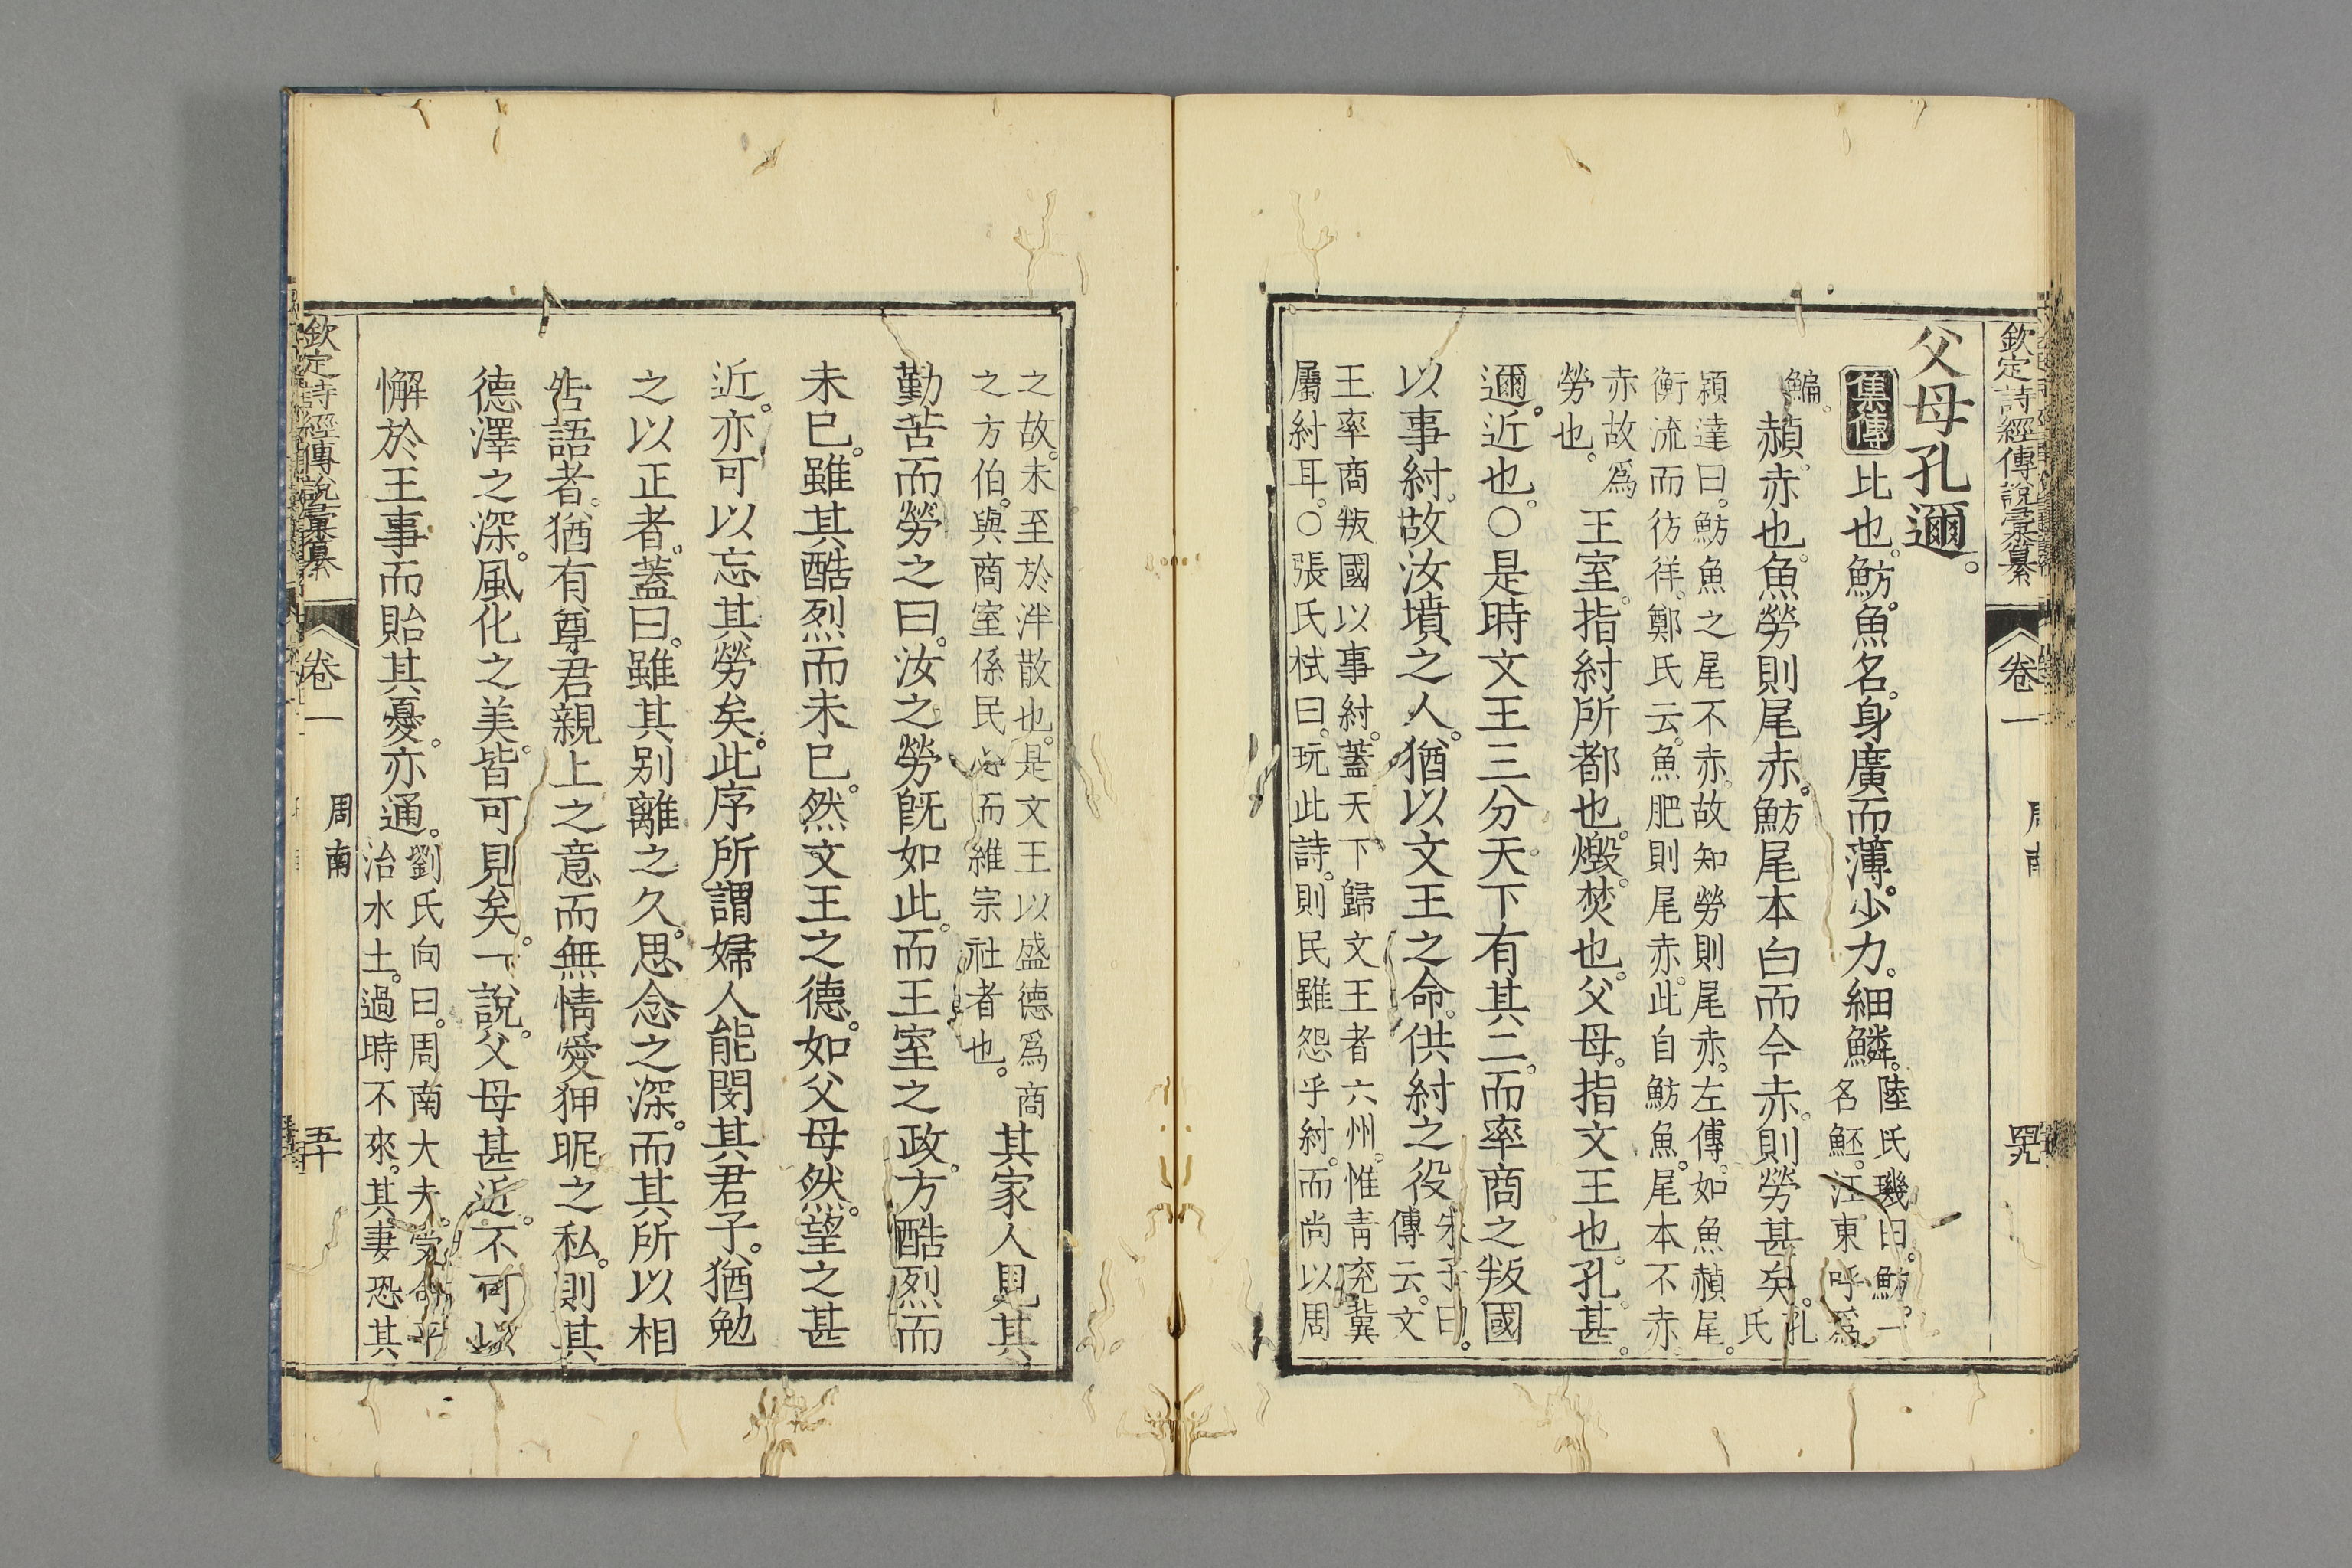 欽定詩經傳說彙纂 卷一 周南 四九
父母孔邇。
集傳 比也。魴。魚名。身廣而薄。少力。細鱗。陸氏璣曰。魴。一名魾。江東呼爲
鯿。赬。赤也。魚勞則尾赤。魴尾本白而今赤。則勞甚矣。孔氏
穎達曰。魴魚之尾不赤。故知勞則尾赤。左傳。如魚赬尾。
衡流而彷徉。鄭氏云。魚肥則尾赤。此自魴魚。尾本不赤。
赤故爲勞也。王室。指紂所都也。燬。焚也。父母。指文王也。孔。甚。
邇。近也。○是時文王三分天下有其二。而率商之叛國
以事紂。故汝墳之人。猶以文王之命。供紂之役。朱子曰。傳云。文
王率商叛國以事紂。蓋天下歸文王者六州。惟靑兗冀
屬紂耳。○張氏栻曰。玩此詩。則民雖怨乎紂。而尚以周
之故。未至於泮散也。是文王以盛德爲商
之方伯。與商室係民心而維宗社者也。其家人見其
勤苦而勞之曰。汝之勞旣如此。而王室之政。方酷烈而
未已。雖其酷烈而未已。然文王之德。如父母然。望之甚
近。亦可以忘其勞矣。此序所謂婦人能閔其君子。猶勉
之以正者。蓋曰。雖其别離之久。思念之深。而其所以相
告語者。猶有尊君親上之意而無情愛狎昵之私。則其
德澤之深。風化之美。皆可見矣。一說。父母甚近。不可以
懈於王事而貽其憂。亦通。劉氏向曰。周南大夫。受命平
治水土。過時不來。其妻恐其
欽定詩經傳說彙纂 卷一 周南 五十